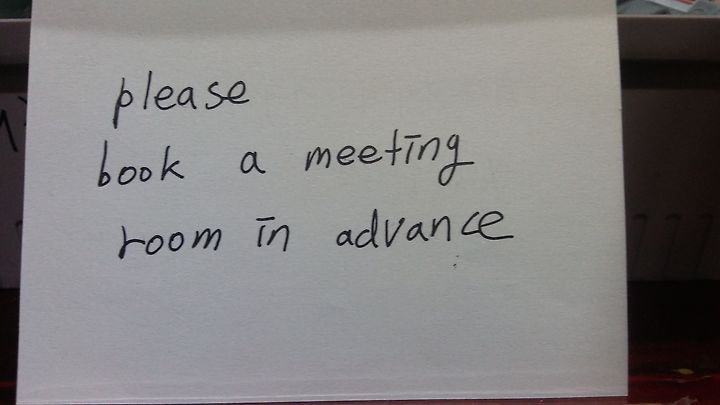 please
book a meeting
room in advance